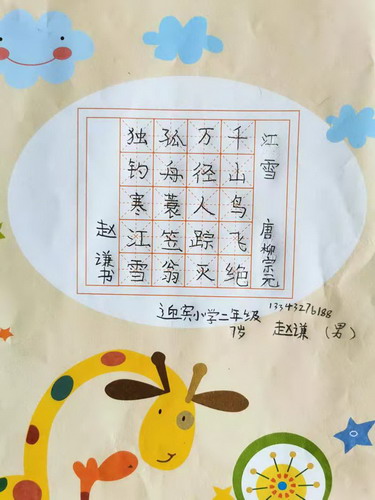 江雪
唐柳宗元
千山鸟飞绝
万径人踪灭
孤舟蓑笠翁
独钓寒江雪
赵谦书
迎宾小学二年级
7岁
13343276188
赵谦（男）